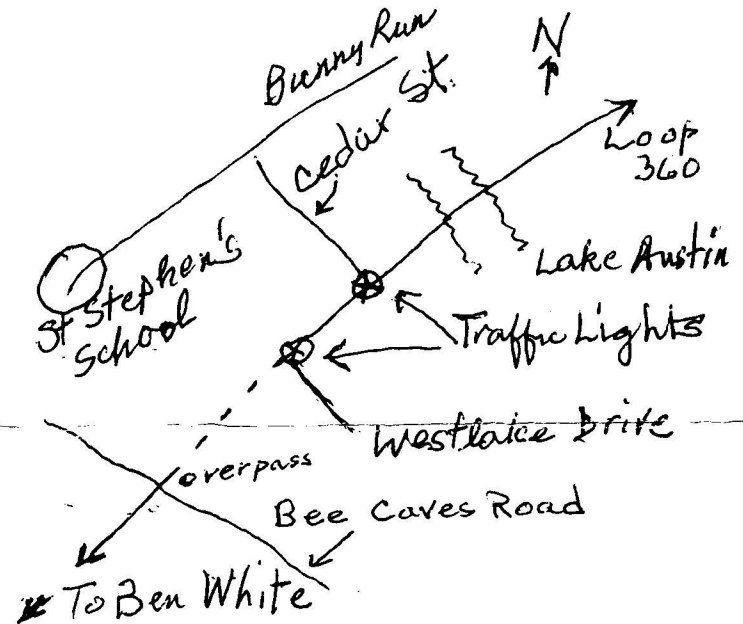 Bunny Run
N
Cedar St.
Loop
360
Lake Austin
St Stephen's
School
Traffic Lights
Westlake Drive
overpass
Bee Caves Road
To Ben White